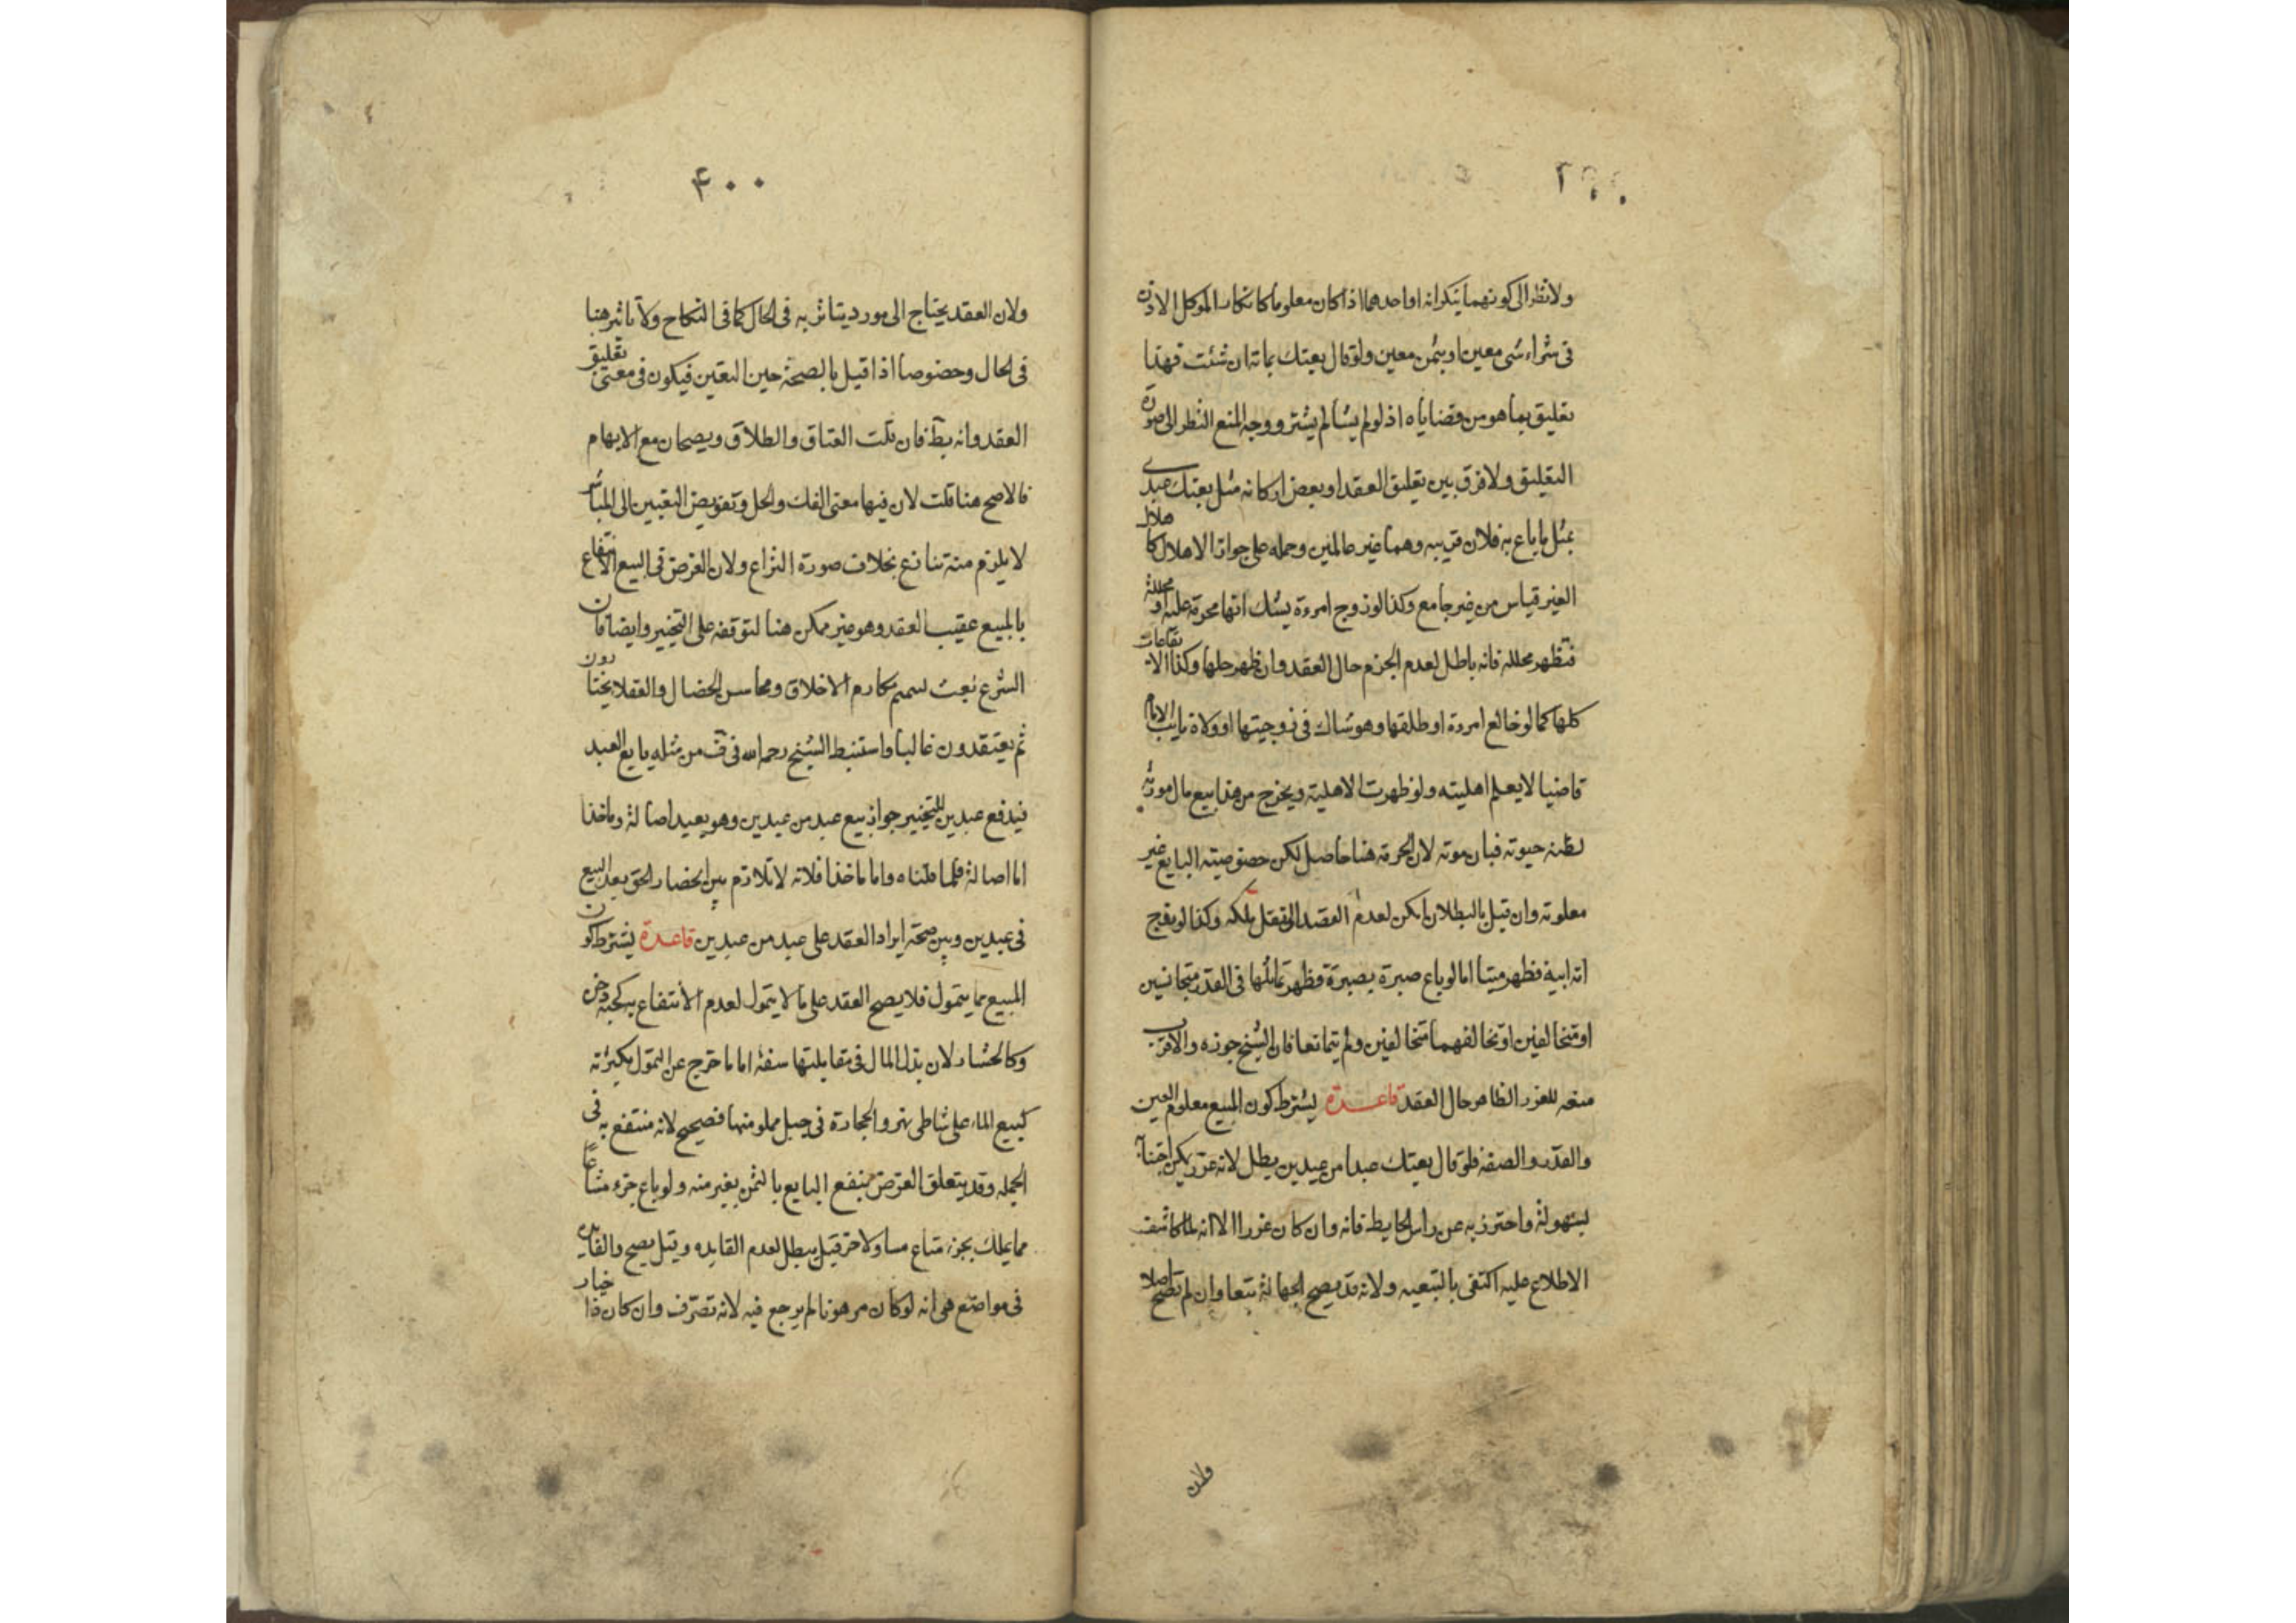 ولا نظر الى كونهما ينكرانه او احدهما اذا كان معلوما كانكار الموكل الاذن
فى شراء شى معين او بثمن معين ولو قال بعتك بمائة ان شئت فهذا
تعليق بما هو من قضاياه اذ لو لم يشألم يشتر ووجه المنع النظر الى صورة
التعليق ولا فرق بين تعليق العقد او بعض اركانه مثل بعتك عبدى
بمثل ما باع به فلان قريبه وهما غير عالمين وحمله على جواز الاهلال كاهلال
الغير قياس من غير جامع وكذا لو زوج امرءة يشك انها محرمة عليه او محللة
فتظهر محللة فانه باطل لعدم الجزم حال العقد وان ظهر حلها وكذا الايقاعات
كلها كما لو خالع امرءة او طلقها وهو شاك فى زوجيتها او ولاة نايب الامام
قاضيا لا يعلم اهليته ولو ظهرت الاهلية ويخرج من هذا بيع مال مورثه
لظنه حيوته فبان موته لان الجزم هنا حاصل لكن خصوصية البايع غير
معلومة وان قيل بالبطلان امكن لعدم القصد الى نقل ملكه وكذا لو زوج
امة ابيه فظهر ميتا اما لو باع صبرة بصبرة فظهر تماثلها فى القدر متجانسين
او متخالفين او تخالفهما متخالفين ولم يتمانعا فان الشيخ جوزه والاقرب
منعه للغرر الظاهر حال العقد قاعدة يشترط كون المبيع معلوم العين
والقدر والصفة فلو قال بعتك عبدا من عبدين بطل لانه غرر يمكن اجتنابه
بسهولة واحترز به عن راس الحايط فانه وان كان غررا الا انه لما كان شق
الاطلاع عليه اكتفى بالتبعية ولانه قد يصح الجهالة تبعا وان لم تصح اصلا
ولان
۴۰۰
ولان العقد يحتاج الى مورد يتاثر به فى الحال كما فى النكاح ولا تاثير هنا
فى الحال وخصوصا اذا قيل بالصحة حين التعين فيكون فى معنى تعليق
العقد وانه بط فان قلت العتاق والطلاق ويصحان مع الابهام
فالاصح هنا قلت لان فيها معنى الفك والحل وتفويض التعيين الى المباشر
لا يلزم منه تنازع بخلاف صورة النزاع ولان الغرض فى البيع الانتفاع
بالمبيع عقيب العقد وهو غير ممكن هنا لتوقفه على التخيير وايضا فان
الشرع بعث لتتميم مكارم الاخلاق ومحاسن الخصال والعقلا يختارون
ثم يعتقدون غالبا واستنبط الشيخ رحمه الله فى ف من مثله بايع العبد
فيدفع عبدين للتخيير جواز بيع عبد من عبدين وهو بعيد اصالة وماخذا
اما اصالة فلما قلناه واما ماخذا فلانه لا تلازم بين انحصار الحق بعد البيع
فى عبدين وبين صحة ايراد العقد على عبد من عبدين قاعدة يشترط كون
المبيع مما يتمول فلا يصح العقد على ما لا يتمول لعدم الانتفاع به كحبة دخن
وكالحشار لان بذل المال فى مقابلتها سفه اما ما خرج عن التمول بكثرته
كبيع الماء على شاطى نهر والحجارة فى جبل مملو منها فصحيح لانه منتفع به فى
الجملة وقد يتعلق الغرض بنفع البايع بالثمن بغير منه ولو باع جزء مشاعا
مما يملك بجزء مشاع مساو لاخر قيل يبطل لعدم الفايده وقيل يصح والفايدة
فى مواضع هى انه لو كان مرهونا لم يرجع فيه لانه تصرف وان كان ذا خيار